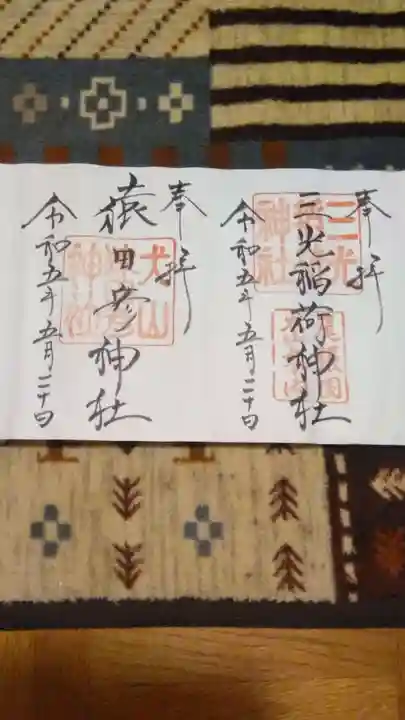 奉拝
三光稲荷神社
令和五年五月二十日
奉拝
猿田彦神社
令和五年五月二十日